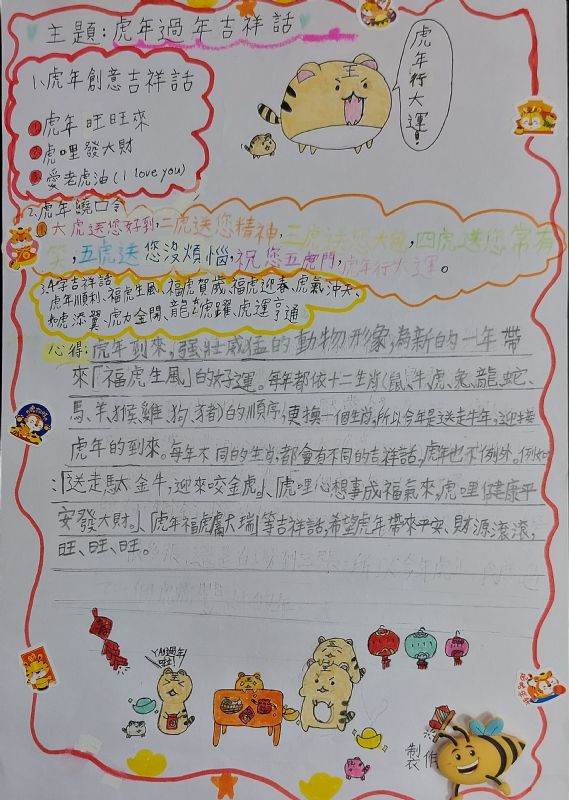 主題:虎年過年吉祥話
虎年行大運!
1.虎年創意吉祥話
1 虎年旺旺來
2 虎哩發大財
3 愛老虎油(I love you)
2.虎年繞口令
六虎送您好到,二虎送您精神,三虎送您大,四虎送您常有
,五虎送您沒煩惱,祝您五虎門,虎年行大運。
3.4字吉祥話
虎年順利、福虎生風、福虎賀歲、福虎迎春、虎氣沖天、
如虎添翼、虎力全開、龍虎躍、虎運亨通
心得:虎年到來,強壯威猛的動物形象,為新的一年帶
來「福虎生風」的好運。每年都依十二生肖(鼠、牛、虎、兔、龍、蛇、
馬、羊、猴、雞、狗、豬)的順序,更換一個生肖,所以今年是送走牛年,迎接
虎年的到來。每年不同的生肖,都會有不同的吉祥話,虎年也不例外。例如
:「送走馱金牛,迎來咬金虎」、「虎哩心想事成福氣來,虎哩健康平
安發大財。」、「虎年福虎大瑞」等吉祥話,希望虎年帶來平安、財源滾滾,
旺、旺、旺。
YA!過年
製作